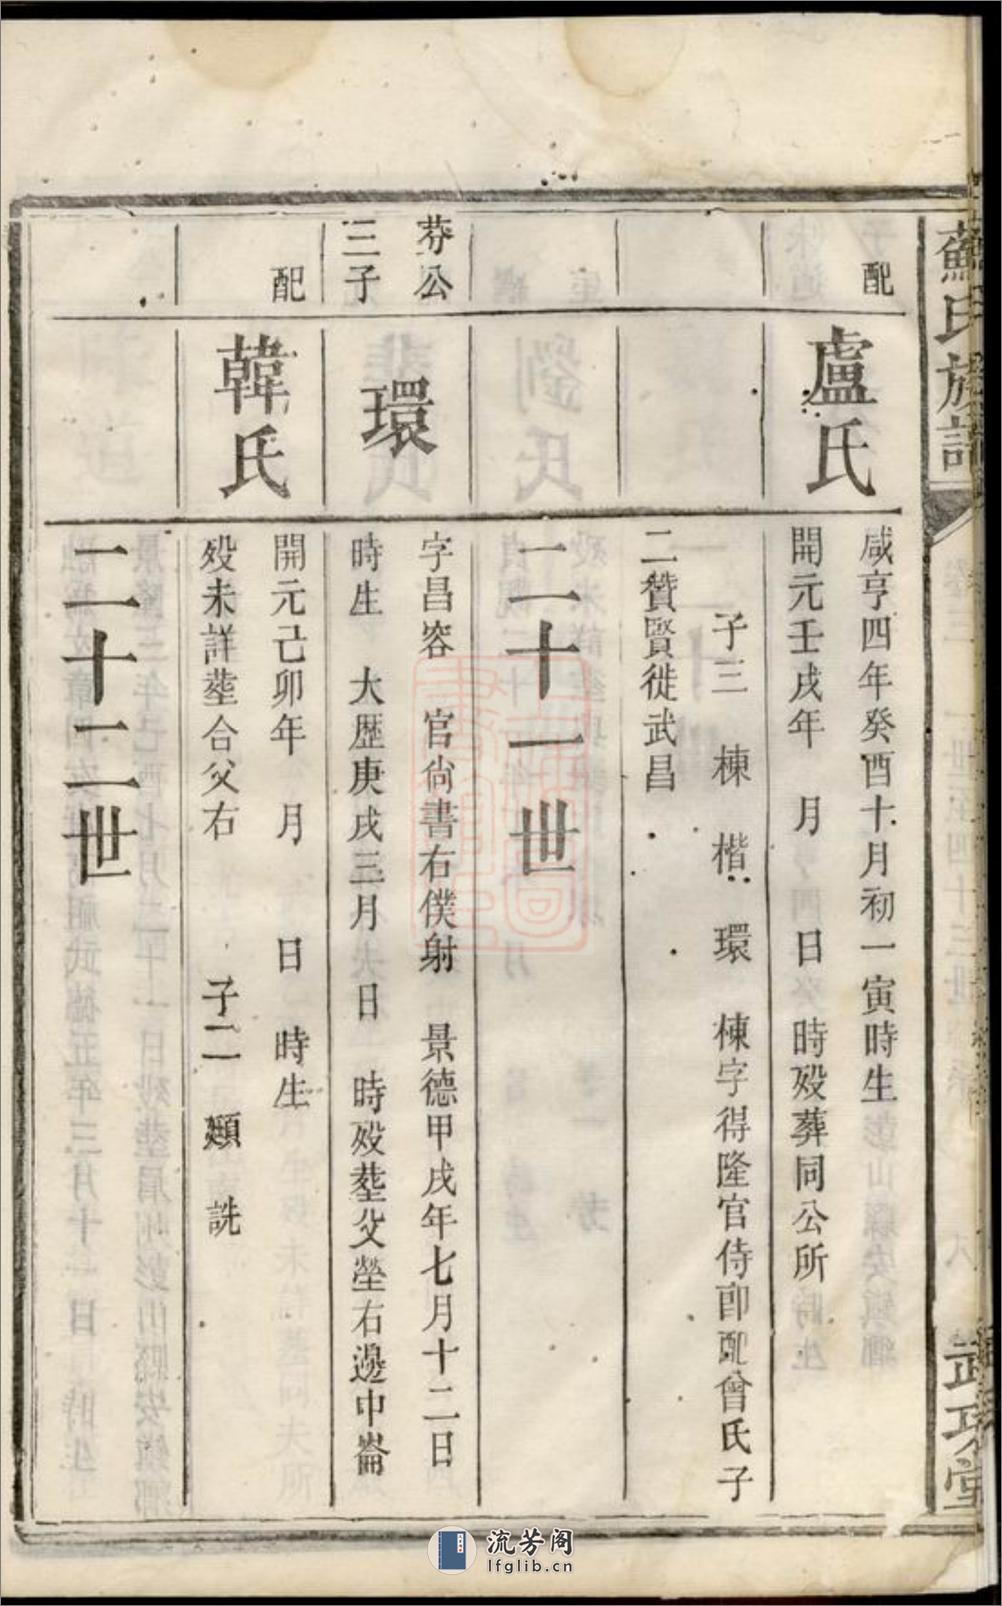 蘇氏族譜
武功堂
配
盧氏
咸亨四年癸酉十月初一寅時生
開元壬戌年　月　日　時殁葬同公所
子三　棟　楷　環　棟字得隆官侍郎配曾氏子
二贊賢徙武昌
二十一世
芬公
三子
環
字昌容　官尙書右僕射　景德甲戌年七月十二日
時生　大歷庚戌三月　日　時殁塟父塋右邊中崙
配
韓氏
開元己卯年　月　日　時生
殁未詳塟合父右　子二　顯　詵
二十二世
流芳阁
lfglib.cn